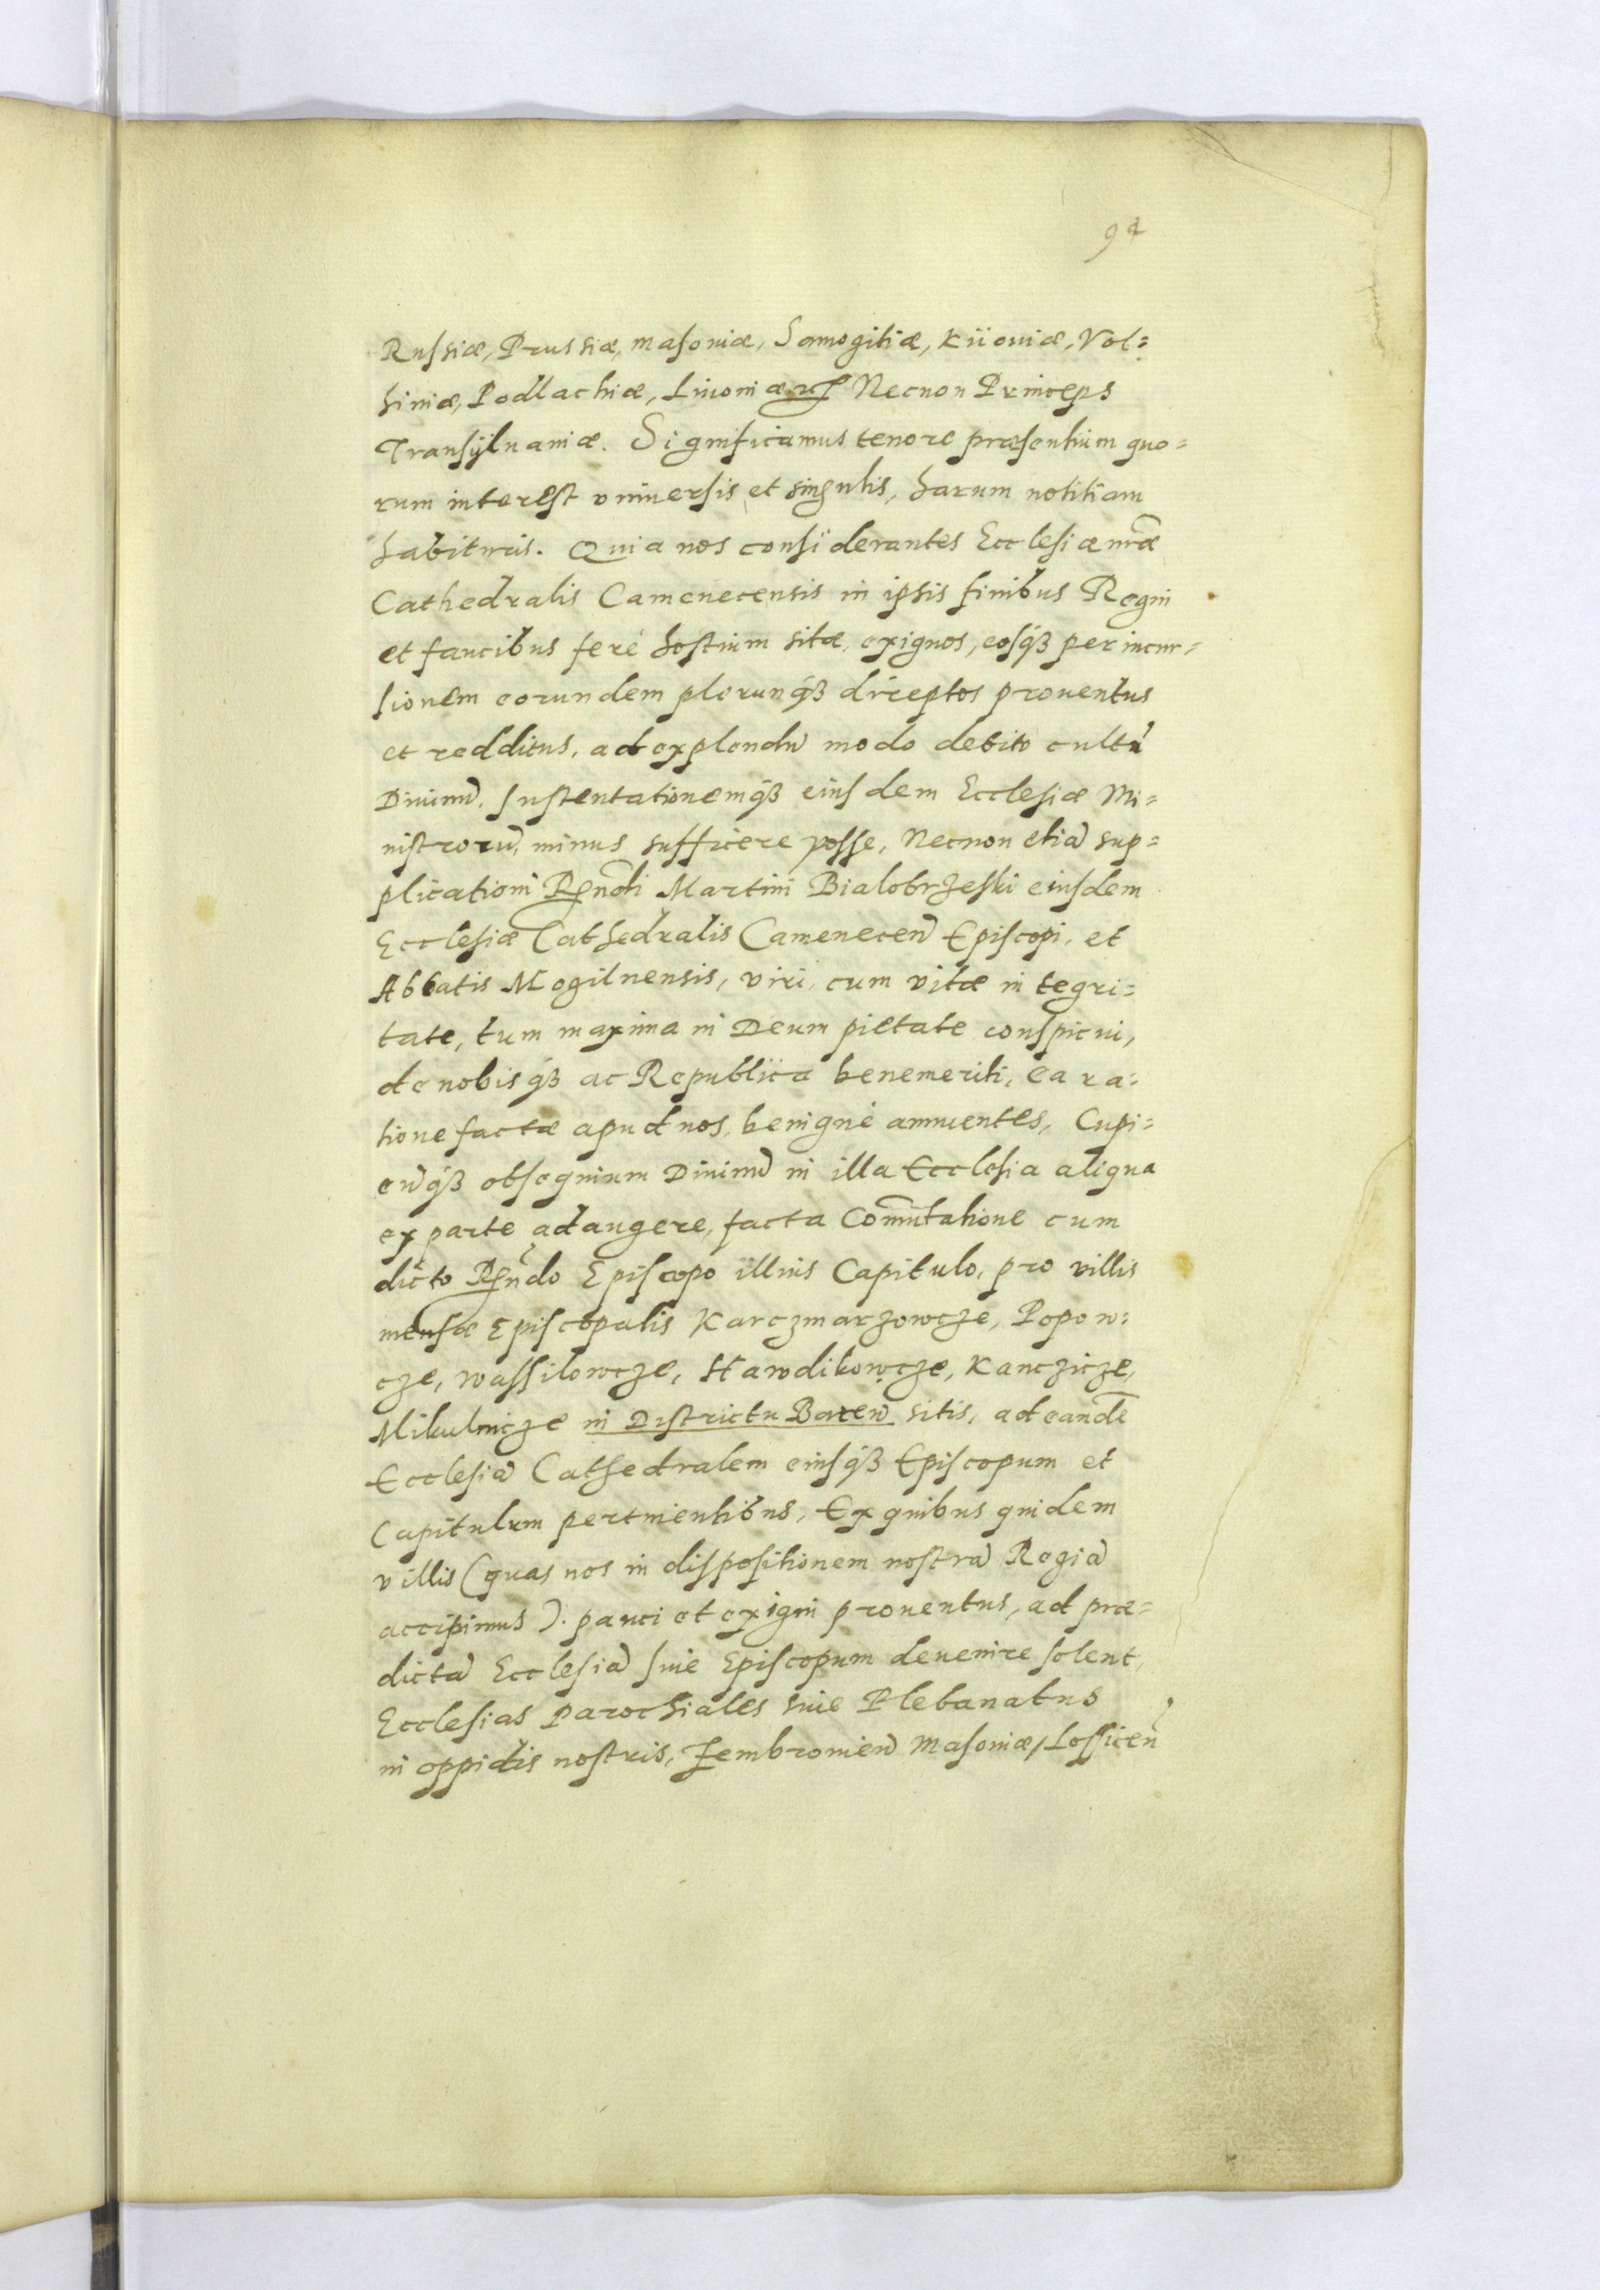 94
Russiæ, Prussiæ, Masoviæ, Samogitiæ, Kiioviæ, Vol=
hiniæ, Podlachiæ, Livoniæq3 Necnon Princeps
Transÿlvaniæ. Significamus tenore præsentium quo=
rum interest vniversis et singulis, harum notitiam
habituris. Quia nos considerantes Ecclesiæ nr̃æ
Cathedralis Camenecensis in ipsis finibus Regni
et faucibus ferè hostium sitæ, exiguos, eosq́3 per incur=
sionem eorundem plerunq́3 direptos proventus
et redditus, ad explendũ modo debito cultũ
Divinũ, sustentationemq́3 eiusdem Ecclesiæ Mi=
nistrorũ, minus sufficere posse, Necnon etiã sup=
plicationi Rñdi Martini Bialobrzeski eiusdem
Ecclesiæ Cathedralis Camenecen̄ Episcopi, et
Abbatis Mogilnensis, viri, cum vitæ integri=
tate, tum maxima in Deum pietate conspicui,
de nobisq́3 ac Republica benemeriti, ea ra=
tione factæ apud nos, benignè annuentes, Cupi=
en̄q́3 obsequium Divinũ in illa Ecclesia aliqua
ex parte adaugere, facta Com̃utatione cum
dicto Rñdo Episcopo illius Capitulo, pro villis
mensæ Episcopalis Karczmarzowcze, Popow=
cze, Wassilowcze, Hawdikowcze, Kanczicze,
Mikulnicze in Districtu Baren̄ sitis, ad eandẽ
Ecclesiã Cathedralem eiusq́3 Episcopum et
Capitulum pertinentibus, Ex quibus quidem
villis (quas nos in dispositionem nostrã Regiã
accipimus). pauci et exigui proventus, ad præ=
dictã Ecclesiã sive Episcopum devenire solent,
Ecclesias Parochiales sive Plebanatus
in oppidis nostris, Zembrovien̄ Masoviæ, Lossicen̄